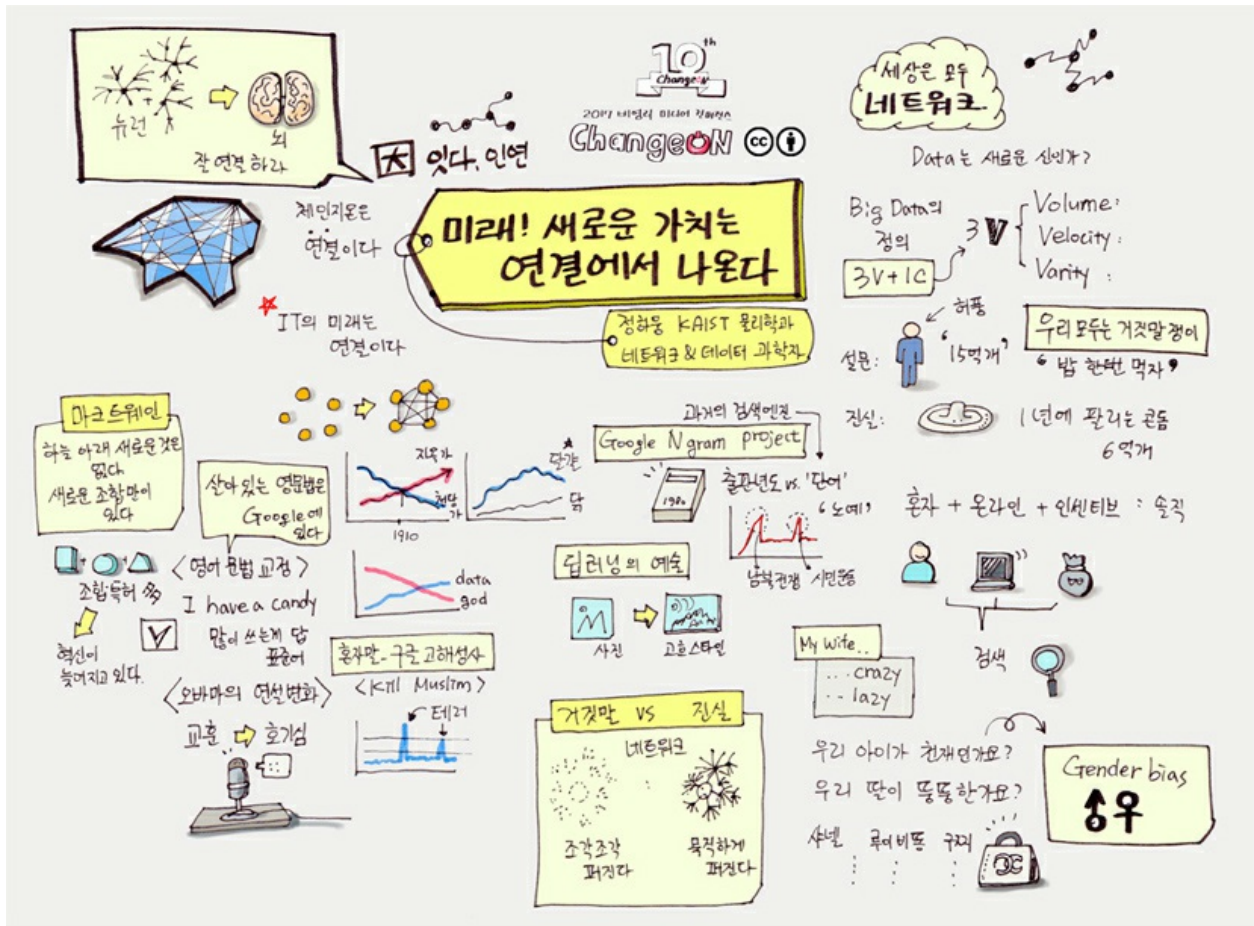 뉴런
뇌
잘 연결하라
잇다. 인연
10th
ChangeON
2017 비영리 미디어 컨퍼런스
ChangeON
cc
체인지온은
연결이다
미래! 새로운 가치는
연결에서 나온다
정하웅 KAIST 물리학과
네트워크 & 데이터 과학자
IT의 미래는
연결이다
세상은 모두
네트워크
Data는 새로운 신인가?
Big Data의
정의
3V+1C
3V
Volume:
Velocity:
Varity:
허풍
설문:
"15억개"
우리 모두는 거짓말쟁이
"밥 한번 먹자"
진실:
1년에 팔리는 콘돔
6억개
혼자 + 온라인 + 인센티브 : 솔직
검색
마크트웨인
하늘 아래 새로운 것은
없다
새로운 조합만이
있다
조합특허 多
혁신이
늦어지고 있다.
살아있는 영문법은
Google에
있다
<영어 문법 교정>
I have a candy
많이 쓰는게 답
표준어
<오바마의 연설변화>
교훈
호기심
지옥가
천당가
1910
달걀
닭
data
god
혼자말_구글 고해성사
<Kill Muslim>
테러
과거의 검색엔진
Google Ngram project
1980
출판년도 vs. '단어'
'노예'
남북전쟁
시민운동
딥러닝의 예술
사진
고흐스타일
거짓말 vs 진실
네트워크
조각조각
퍼진다
묵직하게
퍼진다
My wife..
...crazy
..lazy
우리 아이가 천재인가요?
우리 딸이 뚱뚱한가요?
샤넬
루이비똥
구찌
Gender bias